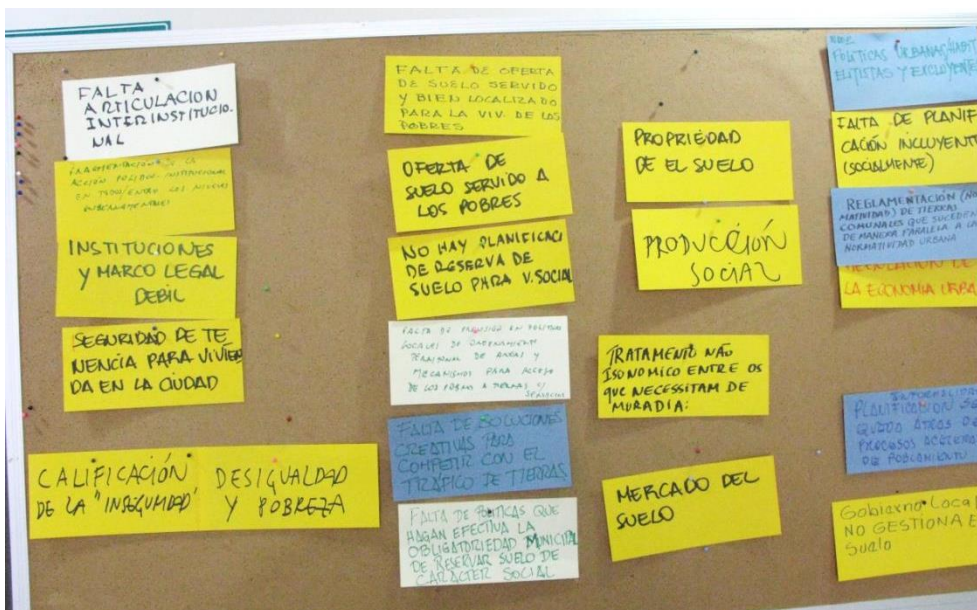 FALTA
ARTICULACION
INTERINSTITUCIO.
NAL
FRAGMENTACIÓN DE LA
ACCIÓN POLITICO-INSTITUCIONAL
EN TODO/ENTRE LOS NIVELES
GUBERNAMENTALES
INSTITUCIONES
Y MARCO LEGAL
DEBIL
SEGURIDAD DE TE
NENCIA PARA VIVIEN
DA EN LA CIUDAD
CALIFICACIÓN
DE LA "INSEGURIDAD"
DESIGUALDAD
Y POBREZA
FALTA DE OFERTA
DE SUELO SERVIDO
Y BIEN LOCALIZADO
PARA LA VIV. DE LOS
POBRES
OFERTA DE
SUELO SERVIDO A
LOS POBRES
NO HAY PLANIFICACI
DE RESERVA DE
SUELO PARA V.SOCIAL
FALTA DE EN POLITICAS
LOCALES DE ORDENAMIENTO
TERRITORIAL DE AREAS Y
MECANISMOS PARA ACCESO
DE LOS POBRES A TIERRAS C/
SERVICIOS
FALTA DE SOLUCIONES
CREATIVAS PARA
COMPETIR CON EL
TRÁFICO DE TIERRAS
FALTA DE POLITICAS QUE
HAGAN EFECTIVA LA
OBLIGATORIEDAD MUNICIPAL
DE RESERVAR SUELO DE
CARÁCTER SOCIAL
PROPRIEDAD
DE EL SUELO
PRODUCCIÓN
SOCIAL
TRATAMENTO NÃO
ISONOMICO ENTRE OS
QUE NECESSITAM DE
MORADIA:
MERCADO DEL
SUELO
POLITICAS URBANAS/HABIT
ELITISTAS Y EXCLUYENTE
FALTA DE PLANIFI
CACIÓN INCLUYENTE
(SOCIALMENTE)
REGLAMENTACIÓN (NOR
MATIVIDAD) DE TIERRAS
COMUNALES QUE SUCEDE
DE MANERA PARALELA A LA
NORMATIVIDAD URBANA
REGULACION DE
LA ECONOMIA URBA
INFORMALIDAD
PLANIFICACION SE
QUEDA ATRAS DE
PROCESOS
DE POBLAMIENTO
Gobierno Local
NO GESTIONA E
Suelo